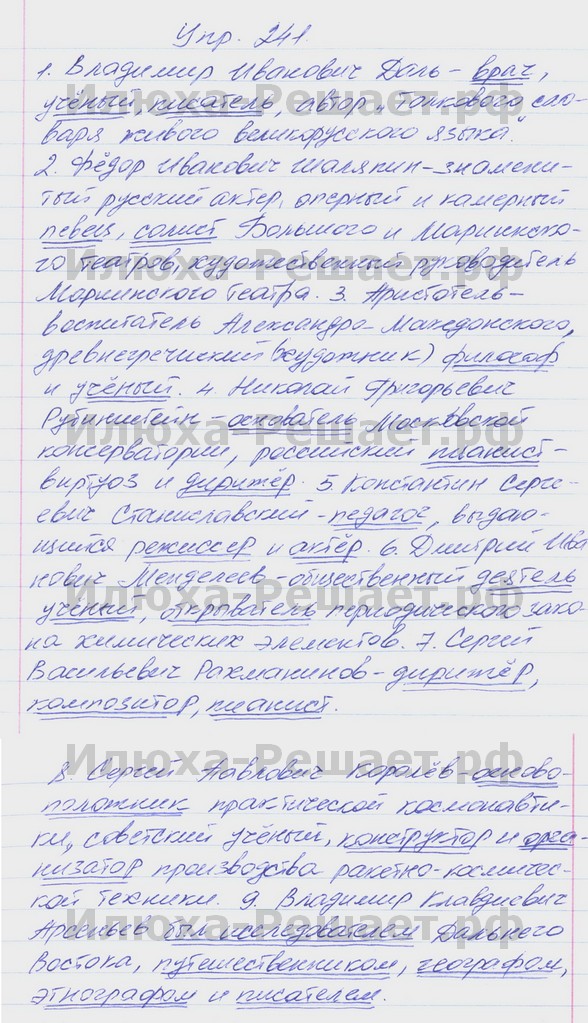 Упр. 241.
1. Владимир Иванович Даль – врач,
учёный, писатель, автор „Толкового сло-
варя живого великорусского языка."
2. Фёдор Иванович Шаляпин – знамени-
тый русский актер, оперный и камерный
певец, солист Большого и Мариинско-
го театров, художественный руководитель
Мариинского театра. 3. Аристотель –
воспитатель Александра Македонского,
древнегреческий (художник) философ
и учёный. 4. Николай Григорьевич
Рубинштейн – основатель Московской
консерватории, российский пианист-
виртуоз и дирижёр. 5. Константин Серге-
евич Станиславский – педагог, выдаю-
щийся режиссер и актёр. 6. Дмитрий Ива
нович Менделеев – общественный деятель
учёный, открыватель периодического зако-
на химических элементов. 7. Сергей
Васильевич Рахманинов – дирижёр,
композитор, пианист.
8. Сергей Павлович Королёв – осново-
положник практической космонавти-
ки, советский учёный, конструктор и орга-
низатор производства ракетно-космичес-
кой техники. 9. Владимир Клавдиевич
Арсеньев был исследователем Дальнего
Востока, путешественником, географом,
этнографом и писателем.
Илюха-Решает.рф
Илюха-Решает.рф
Илюха-Решает.рф
Илюха-Решает.рф
Илюха-Решает.рф
Илюха-Решает.рф
Илюха-Решает.рф
Илюха-Решает.рф